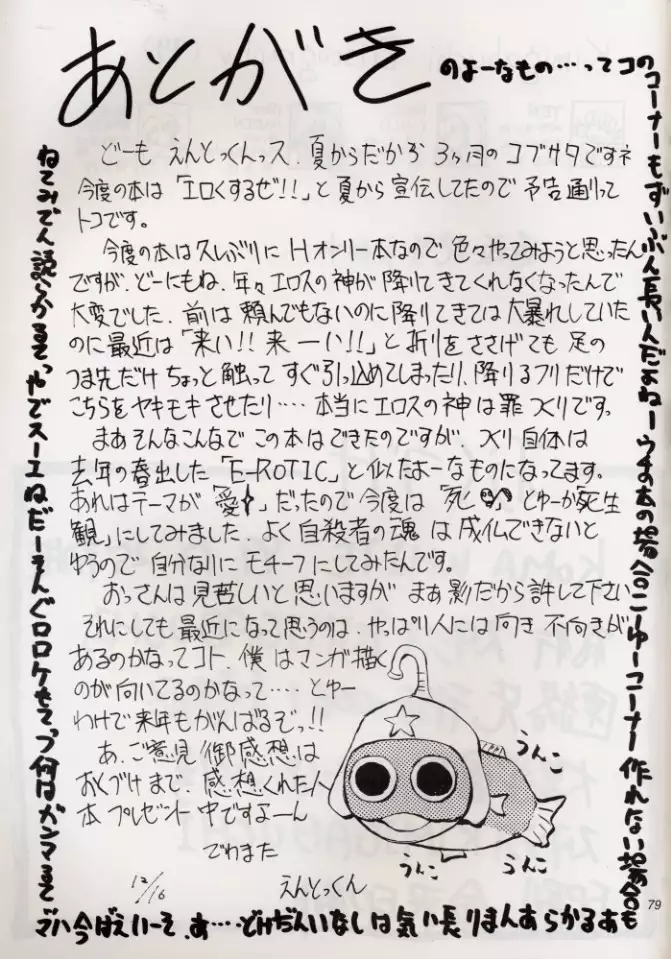 あとがき
のよーなもの…ってコの
コーナーもずいぶん長いんだよねーウチの本の場合こーゆーコーナー作れない場合も
あるからあんまり長い気はしないんだけど…。あ、そーいえば今ハマ
ってるマンガは何つってもケロロぐんそーだねエースでやってるぞぶん読んでみてね
どーも えんとっくんっス. 夏からだから 3ヶ月のゴブサタですネ
今度の本は「エロくするぜ!!」と夏から宣伝してたので 予告通りって
トコです。
今度の本は久しぶりに Hオンリー本なので 色々やってみようと思ったん
ですが、どーにもね、年々エロスの神が降りてきてくれなくなったんで
大変でした. 前は頼んでもないのに降りてきては大暴れしていた
のに最近は「来い!! 来ーい!!」と祈りをささげても 足の
つま先だけ ちょっと触って すぐ引っ込めてしまったり、降りるフリだけで
こちらをヤキモキさせたり…. 本当にエロスの神は罪づくりです。
まあそんなこんなで この本はできたのですが、つくり自体は
去年の春出した「E-ROTIC」と似たよーなものになってます。
あれはテーマが「愛」だったので今度は「死」とゆーか「死生
観」にしてみました. よく自殺者の魂は成仏できないと
ゆうので 自分なりに モチーフにしてみたんです。
おっさんは見苦しいと思いますが まあ影だから許して下さい
それにしても最近になって思うのは、やっぱり人には向き不向きが
あるのかなってコト. 僕はマンガ描く
のが向いてるのかなって…. とゆー
わけで来年もがんばるぞっ!!
あ、ご意見/御感想は
おくづけまで、感想くれた人
本プレゼント中ですよーん
でわまた
12/16 えんとっくん
うんこ
うんこ
うんこ
79